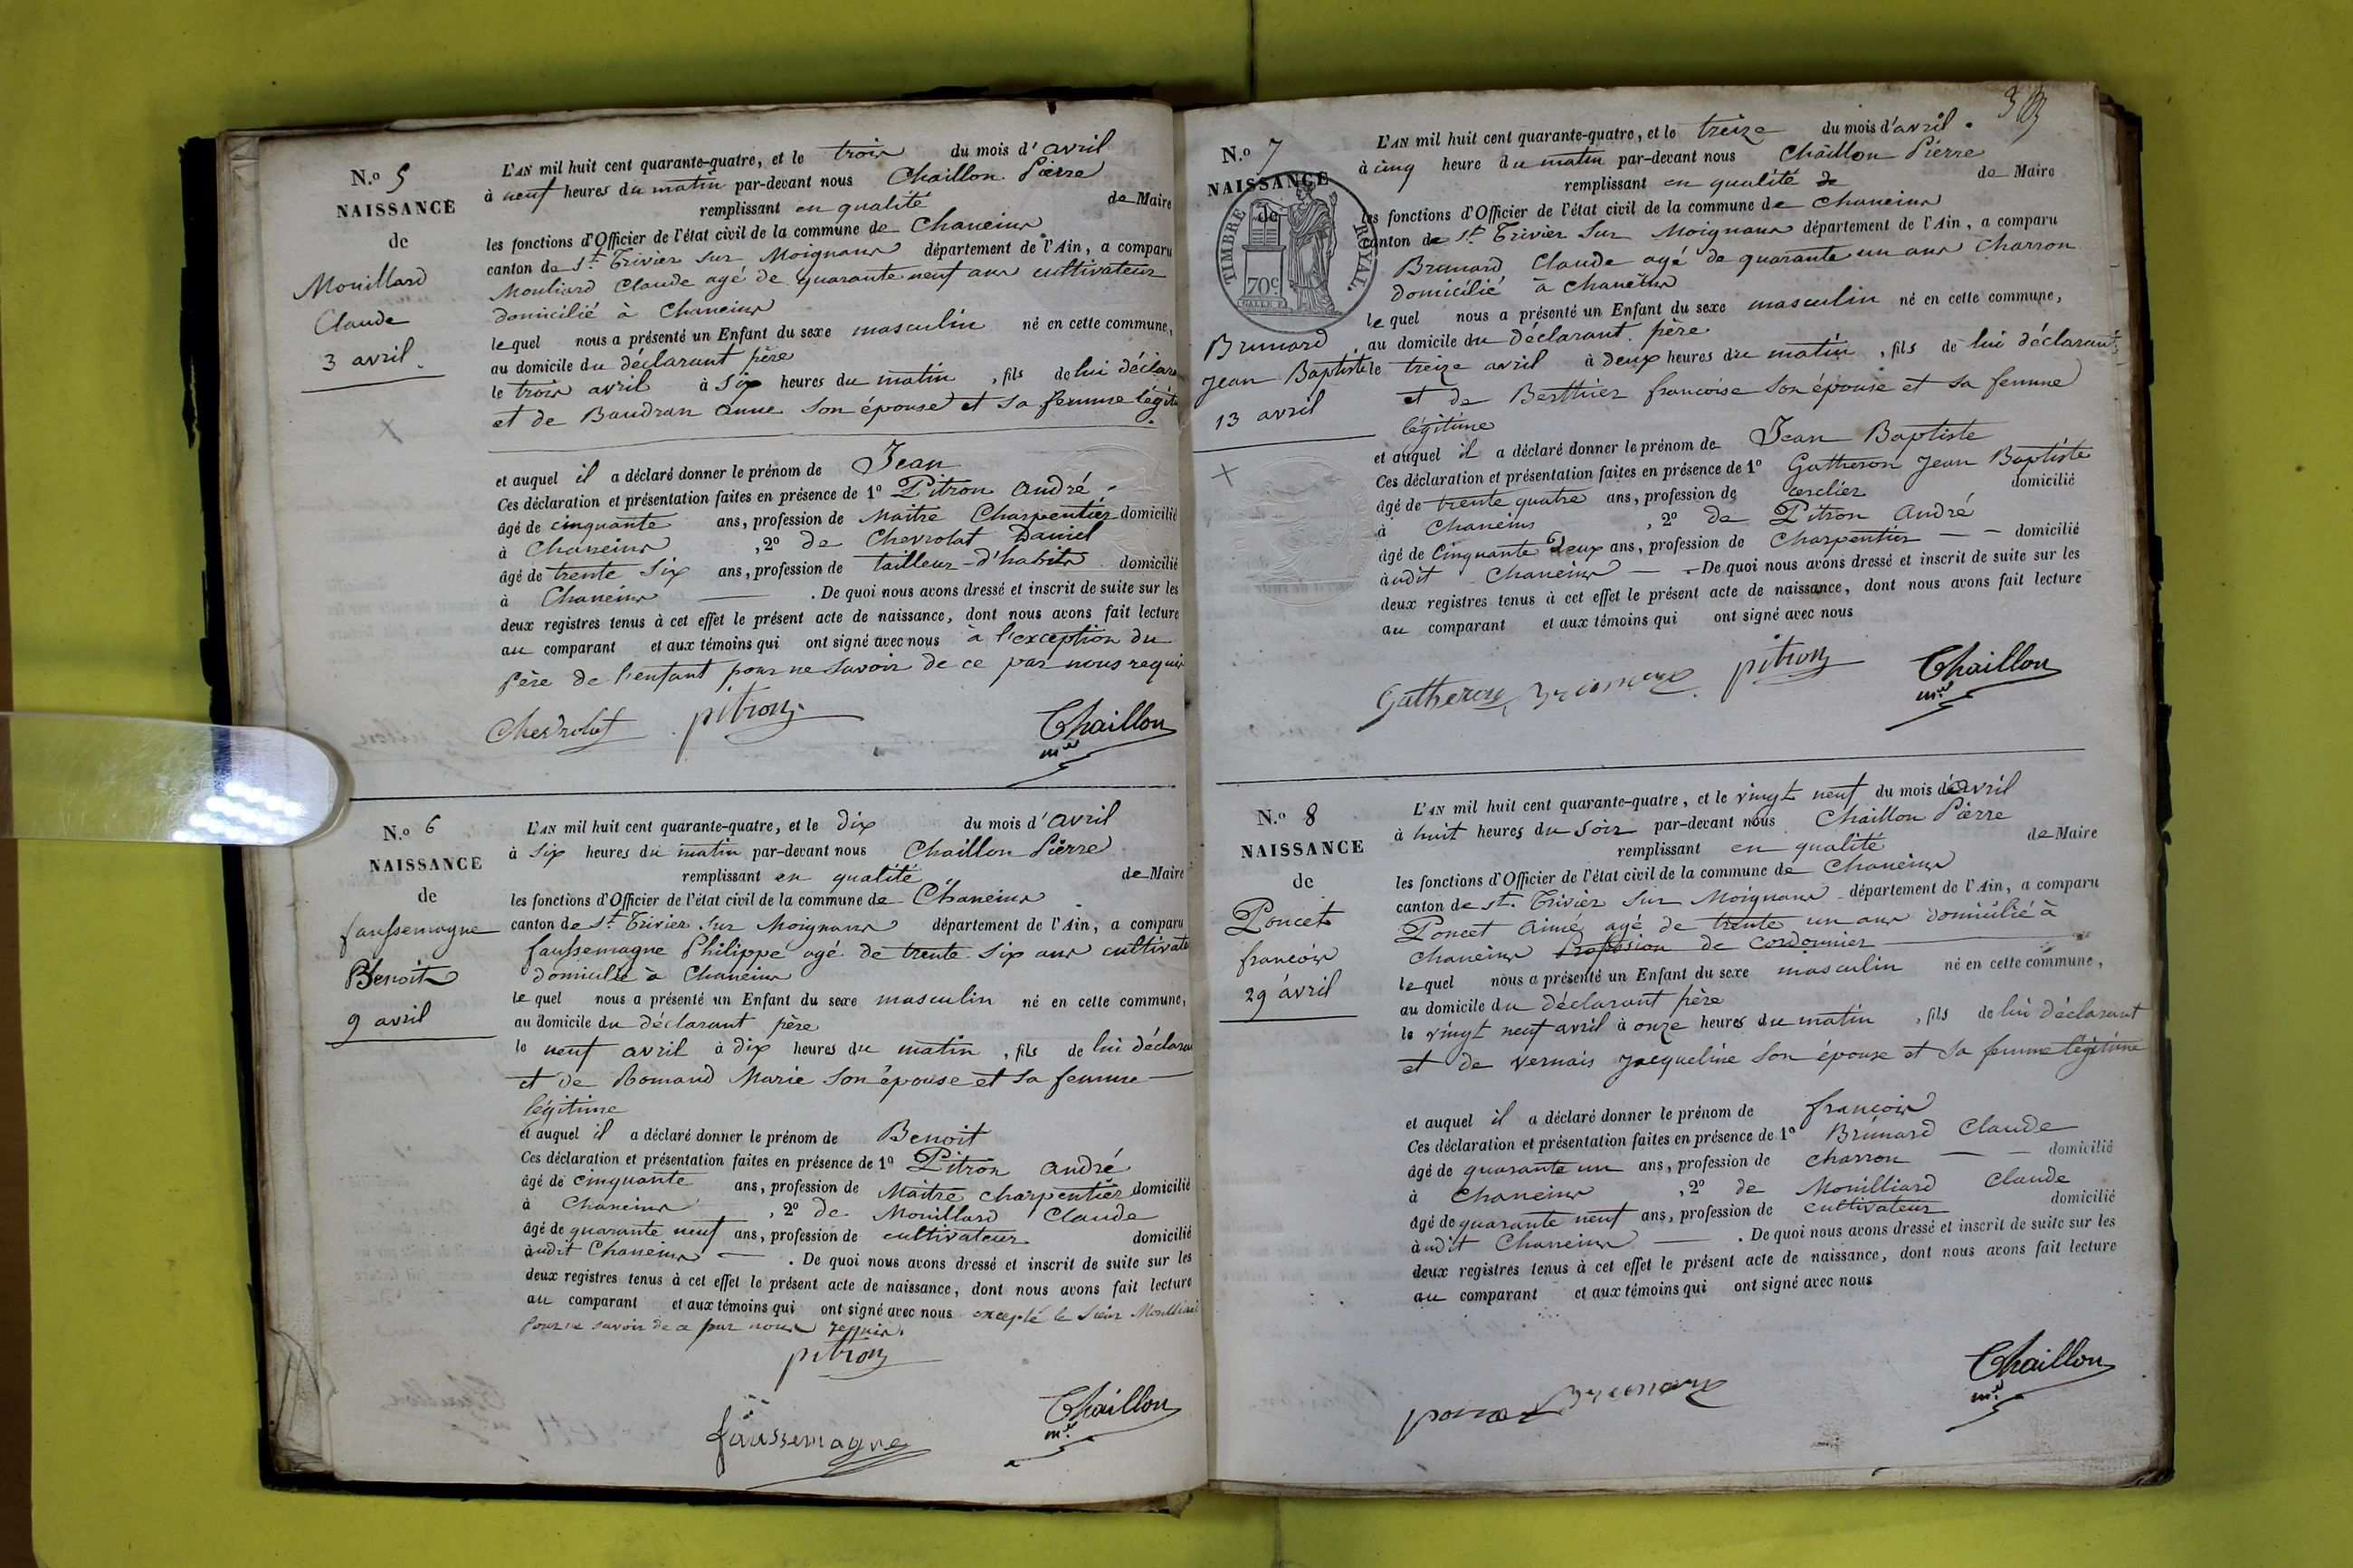 N.o 5
NAISSANCE
de
Mouillard
Claude
3 avril
L'AN mil huit cent quarante-quatre, et le trois du mois d'avril
à neuf heures du matin par-devant nous Chaillon Pierre
remplissant en qualité de Maire
les fonctions d'Officier de l'état civil de la commune de Chaneins
canton de St. Trivier sur Moignans département de l'Ain, a comparu
Mouliard Claude agé de quarante neuf ans cultivateur
domicilié à Chaneins
lequel nous a présenté un Enfant du sexe masculin né en cette commune,
au domicile du déclarant père
le trois avril à six heures du matin, fils de lui déclara
et de Baudran anne son épouse et sa femme légiti
et auquel il a déclaré donner le prénom de Jean
Ces déclaration et présentation faites en présence de 1o Pitron andré
âgé de cinquante ans, profession de Maitre Charpentier domicilié
à Chaneins, 2o de Chevrolat Daniel
âgé de trente six ans, profession de tailleur d'habits domicilié
à Chaneins. De quoi nous avons dressé et inscrit de suite sur les
deux registres tenus à cet effet le présent acte de naissance, dont nous avons fait lecture
au comparant et aux témoins qui ont signé avec nous à l'exception du
père de l'enfant pour ne savoir de ce par nous requis
Chevrolat pitron Chaillon
mre
N.o 6
NAISSANCE
de
faussemagne
Benoit
9 avril
L'AN mil huit cent quarante-quatre, et le dix du mois d'avril
à six heures du matin par-devant nous Chaillon Pierre
remplissant en qualité de Maire
les fonctions d'Officier de l'état civil de la commune de Chaneins
canton de St. Trivier sur Moignans département de l'Ain, a comparu
faussemagne Philippe agé de trente six ans cultivate
domicilié à Chaneins
lequel nous a présenté un Enfant du sexe masculin né en cette commune,
au domicile du déclarant père
le neuf avril à dix heures du matin, fils de lui déclaran
et de Romand Marie son épouse et sa femme
légitime
et auquel il a déclaré donner le prénom de Benoit
Ces déclaration et présentation faites en présence de 1o Pitron andré
âgé de cinquante ans, profession de Maitre charpentier domicilié
à Chaneins, 2o de Mouillard Claude
âgé de quarante neuf ans, profession de cultivateur domicilié
àudit Chaneins. De quoi nous avons dressé et inscrit de suite sur les
deux registres tenus à cet effet le présent acte de naissance, dont nous avons fait lecture
au comparant et aux témoins qui ont signé avec nous excepté le sieur Mouilliard
pour ne savoir de ce par nous requis.
pitron
faussemagne Chaillon
mre
383
N.o 7
NAISSANCE
de
TIMBRE ROYAL
70c
Brunard
Jean Baptiste
13 avril
L'AN mil huit cent quarante-quatre, et le treize du mois d'avril.
à cinq heure du matin par-devant nous Chaillon Pierre
remplissant en qualité de de Maire
les fonctions d'Officier de l'état civil de la commune de Chaneins
canton de St. Trivier sur Moignans département de l'Ain, a comparu
Brunard Claude agé de quarante un ans Charron
domicilié à Chaneins
lequel nous a présenté un Enfant du sexe masculin né en cette commune,
au domicile du déclarant père
le treize avril à deux heures du matin, fils de lui déclarant
et de Berthier francoise son épouse et sa femme
légitime
et auquel il a déclaré donner le prénom de Jean Baptiste
Ces déclaration et présentation faites en présence de 1o Gatheron Jean Baptiste
âgé de trente quatre ans, profession de cerclier domicilié
à Chaneins, 2o de Pitron André
âgé de Cinquante deux ans, profession de Charpentier domicilié
àudit Chaneins. De quoi nous avons dressé et inscrit de suite sur les
deux registres tenus à cet effet le présent acte de naissance, dont nous avons fait lecture
au comparant et aux témoins qui ont signé avec nous
Gatheron Brunard pitron Chaillon
mre
N.o 8
NAISSANCE
de
Poncet
francois
29 avril
L'AN mil huit cent quarante-quatre, et le vingt neuf du mois d'avril
à huit heures du soir par-devant nous Chaillon Pierre
remplissant en qualité de Maire
les fonctions d'Officier de l'état civil de la commune de Chaneins
canton de St. Trivier sur Moignans département de l'Ain, a comparu
Poncet Aimé agé de trente un ans domicilié à
Chaneins Profession de Cordonnier
lequel nous a présenté un Enfant du sexe masculin né en cette commune,
au domicile du déclarant père
le vingt neuf avril à onze heures du matin, fils de lui déclarant
et de Vernais Jacqueline son épouse et sa femme légitime
et auquel il a déclaré donner le prénom de francois
Ces déclaration et présentation faites en présence de 1o Brunard Claude
âgé de quarante un ans, profession de charron domicilié
à Chaneins, 2o de Mouilliard Claude
âgé de quarante neuf ans, profession de cultivateur domicilié
àudit Chaneins. De quoi nous avons dressé et inscrit de suite sur les
deux registres tenus à cet effet le présent acte de naissance, dont nous avons fait lecture
au comparant et aux témoins qui ont signé avec nous
poncet Brunard Chaillon
mre